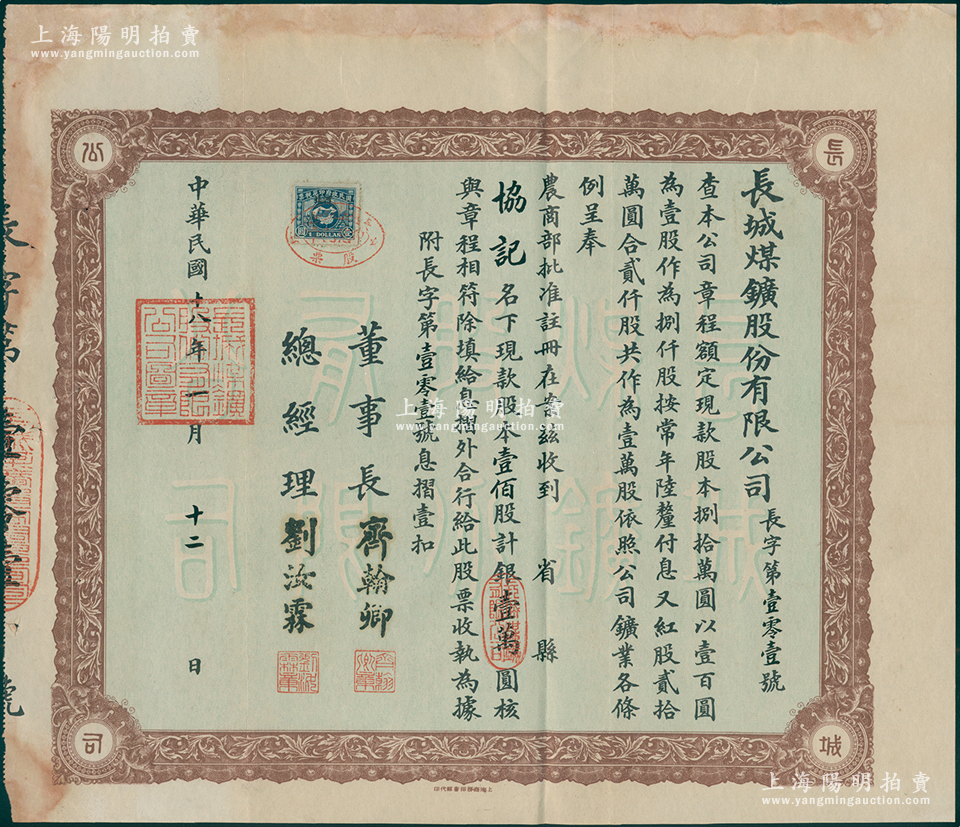 上海陽明拍賣
www.yangmingauction.com
長城煤鑛股份有限公司
長字第壹零壹號
查本公司章程額定現款股本捌拾萬圓以壹百圓
為壹股作為捌仟股按常年陸釐付息又紅股貳拾
萬圓合貳仟股共作為壹萬股依照公司鑛業各條
例呈奉
農商部批准註冊在案茲收到 省 縣
協記名下現款股本壹佰股計銀壹萬圓核
與章程相符除填給息摺外合行給此股票收執為據
附長字第壹零壹號息摺壹扣
董事長 齊翰卿
總經理 劉汝霖
中華民國十八年一月十二日
長
城
公
司
長城煤鑛
股份有限
公司圖章
1 DOLLAR
股票
長城煤鑛股份有限公司
長字第壹零壹號
上海陽明拍賣
www.yangmingauction.com
上海陽明拍賣
www.yangmingauction.com